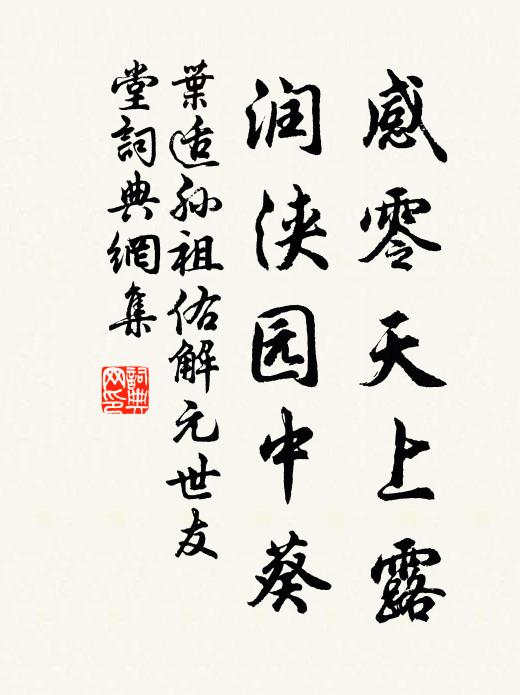 感零天上露
润浃园中葵
葉适孙祖佑解元世友
堂詞典網集
詞典网印